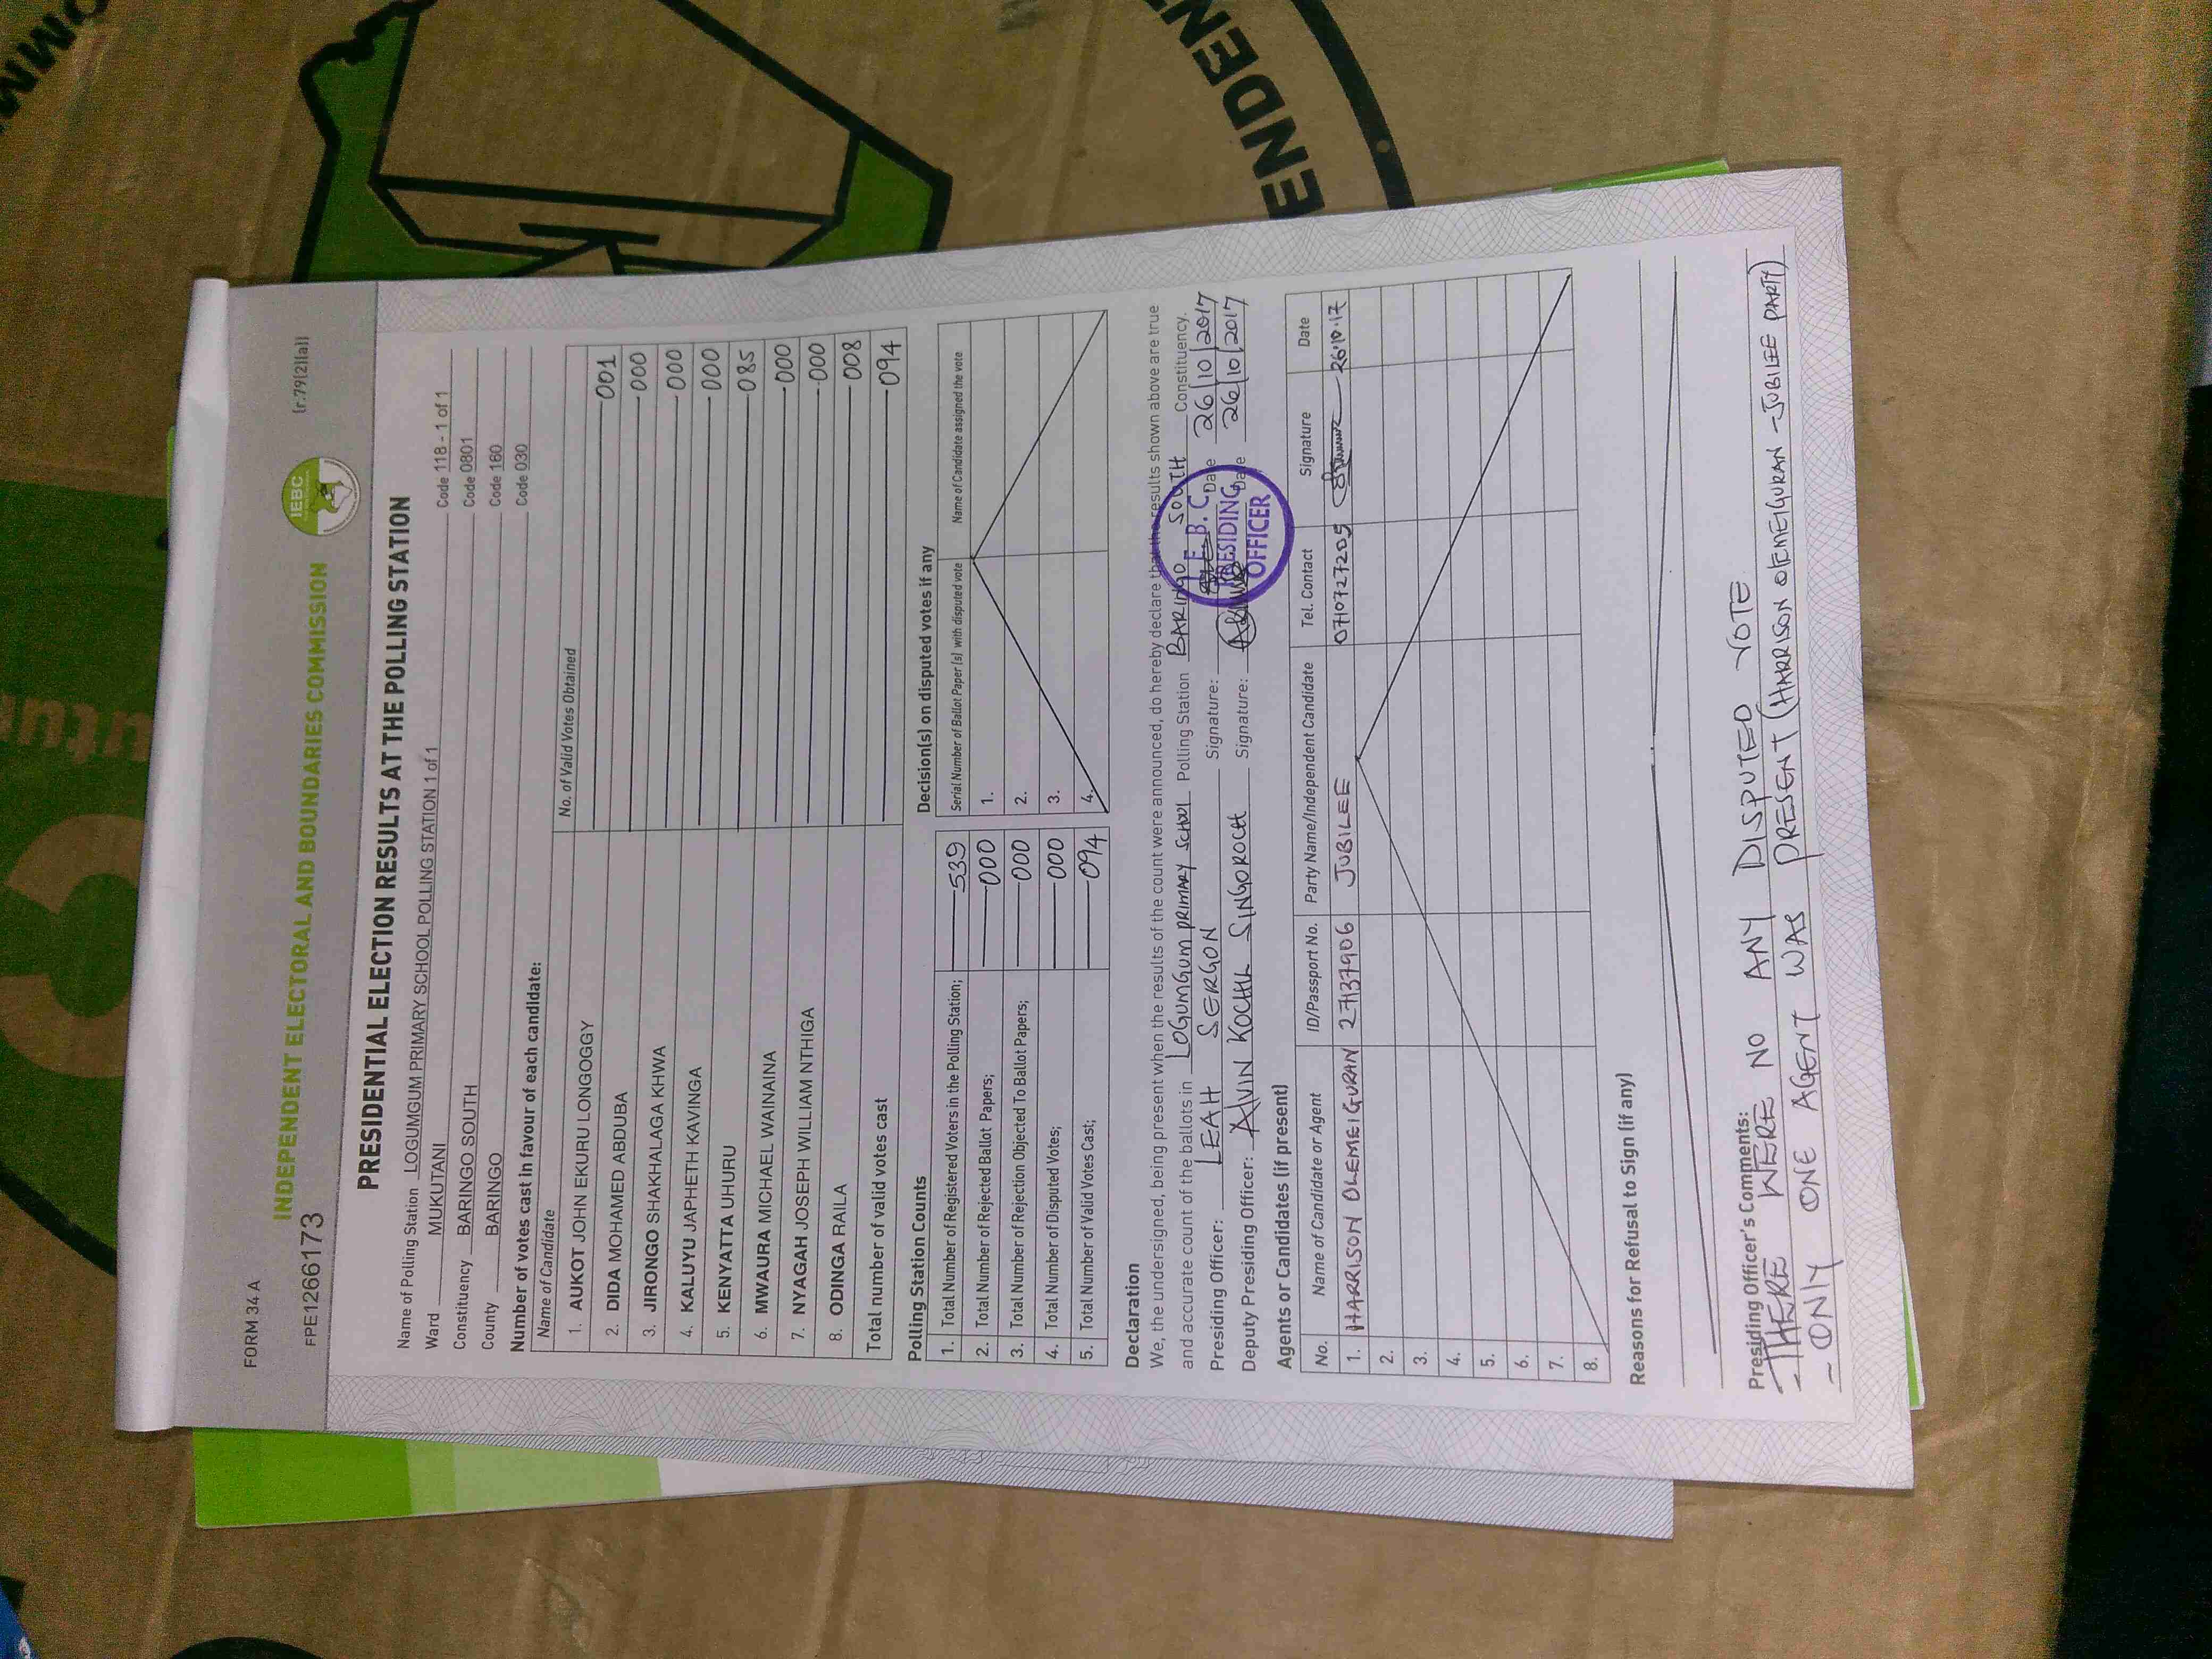 FORM 34 A
FPE1266173
INDEPENDENT ELECTORAL AND BOUNDARIES COMMISSION
IEBC
(r.79(2)(a))
PRESIDENTIAL ELECTION RESULTS AT THE POLLING STATION
Name of Polling Station LOGUMGUM PRIMARY SCHOOL POLLING STATION 1 of 1 Code 118 - 1 of 1
Ward MUKUTANI Code 0801
Constituency BARINGO SOUTH Code 160
County BARINGO Code 030
Number of votes cast in favour of each candidate:
Name of Candidate No. of Valid Votes Obtained
1. AUKOT JOHN EKURU LONGOGGY 001
2. DIDA MOHAMED ABDUBA 000
3. JIRONGO SHAKHALAGA KHWA 000
4. KALUYU JAPHETH KAVINGA 000
5. KENYATTA UHURU 085
6. MWAURA MICHAEL WAINAINA 000
7. NYAGAH JOSEPH WILLIAM NTHIGA 000
8. ODINGA RAILA 008
Total number of valid votes cast 094
Polling Station Counts
1. Total Number of Registered Voters in the Polling Station; 539
2. Total Number of Rejected Ballot Papers; 000
3. Total Number of Rejection Objected To Ballot Papers; 000
4. Total Number of Disputed Votes; 000
5. Total Number of Valid Votes Cast; 094
Decision(s) on disputed votes if any
Serial Number of Ballot Paper (s) with disputed vote Name of Candidate assigned the vote
1.
2.
3.
4.
Declaration
We, the undersigned, being present when the results of the count were announced, do hereby declare that the results shown above are true
and accurate count of the ballots in LOGUMGUM PRIMARY SCHOOL Polling Station BARINGO SOUTH Constituency.
Presiding Officer: LEAH SERGON Signature: Date 26/10/2017
Deputy Presiding Officer: ALVIN KOCHIL SINGOROCH Signature: Date 26/10/2017
I.E.B.C
PRESIDING
OFFICER
Agents or Candidates (if present)
No. Name of Candidate or Agent ID/Passport No. Party Name/Independent Candidate Tel. Contact Signature Date
1. HARRISON OLEMEIGURAN 27137906 JUBILEE 0710727205 26.10.17
2.
3.
4.
5.
6.
7.
8.
Reasons for Refusal to Sign (if any)
Presiding Officer's Comments:
- THERE WERE NO ANY DISPUTED VOTE
- ONLY ONE AGENT WAS PRESENT (HARRISON OLEMEIGURAN - JUBILEE PARTY)
ENDEN